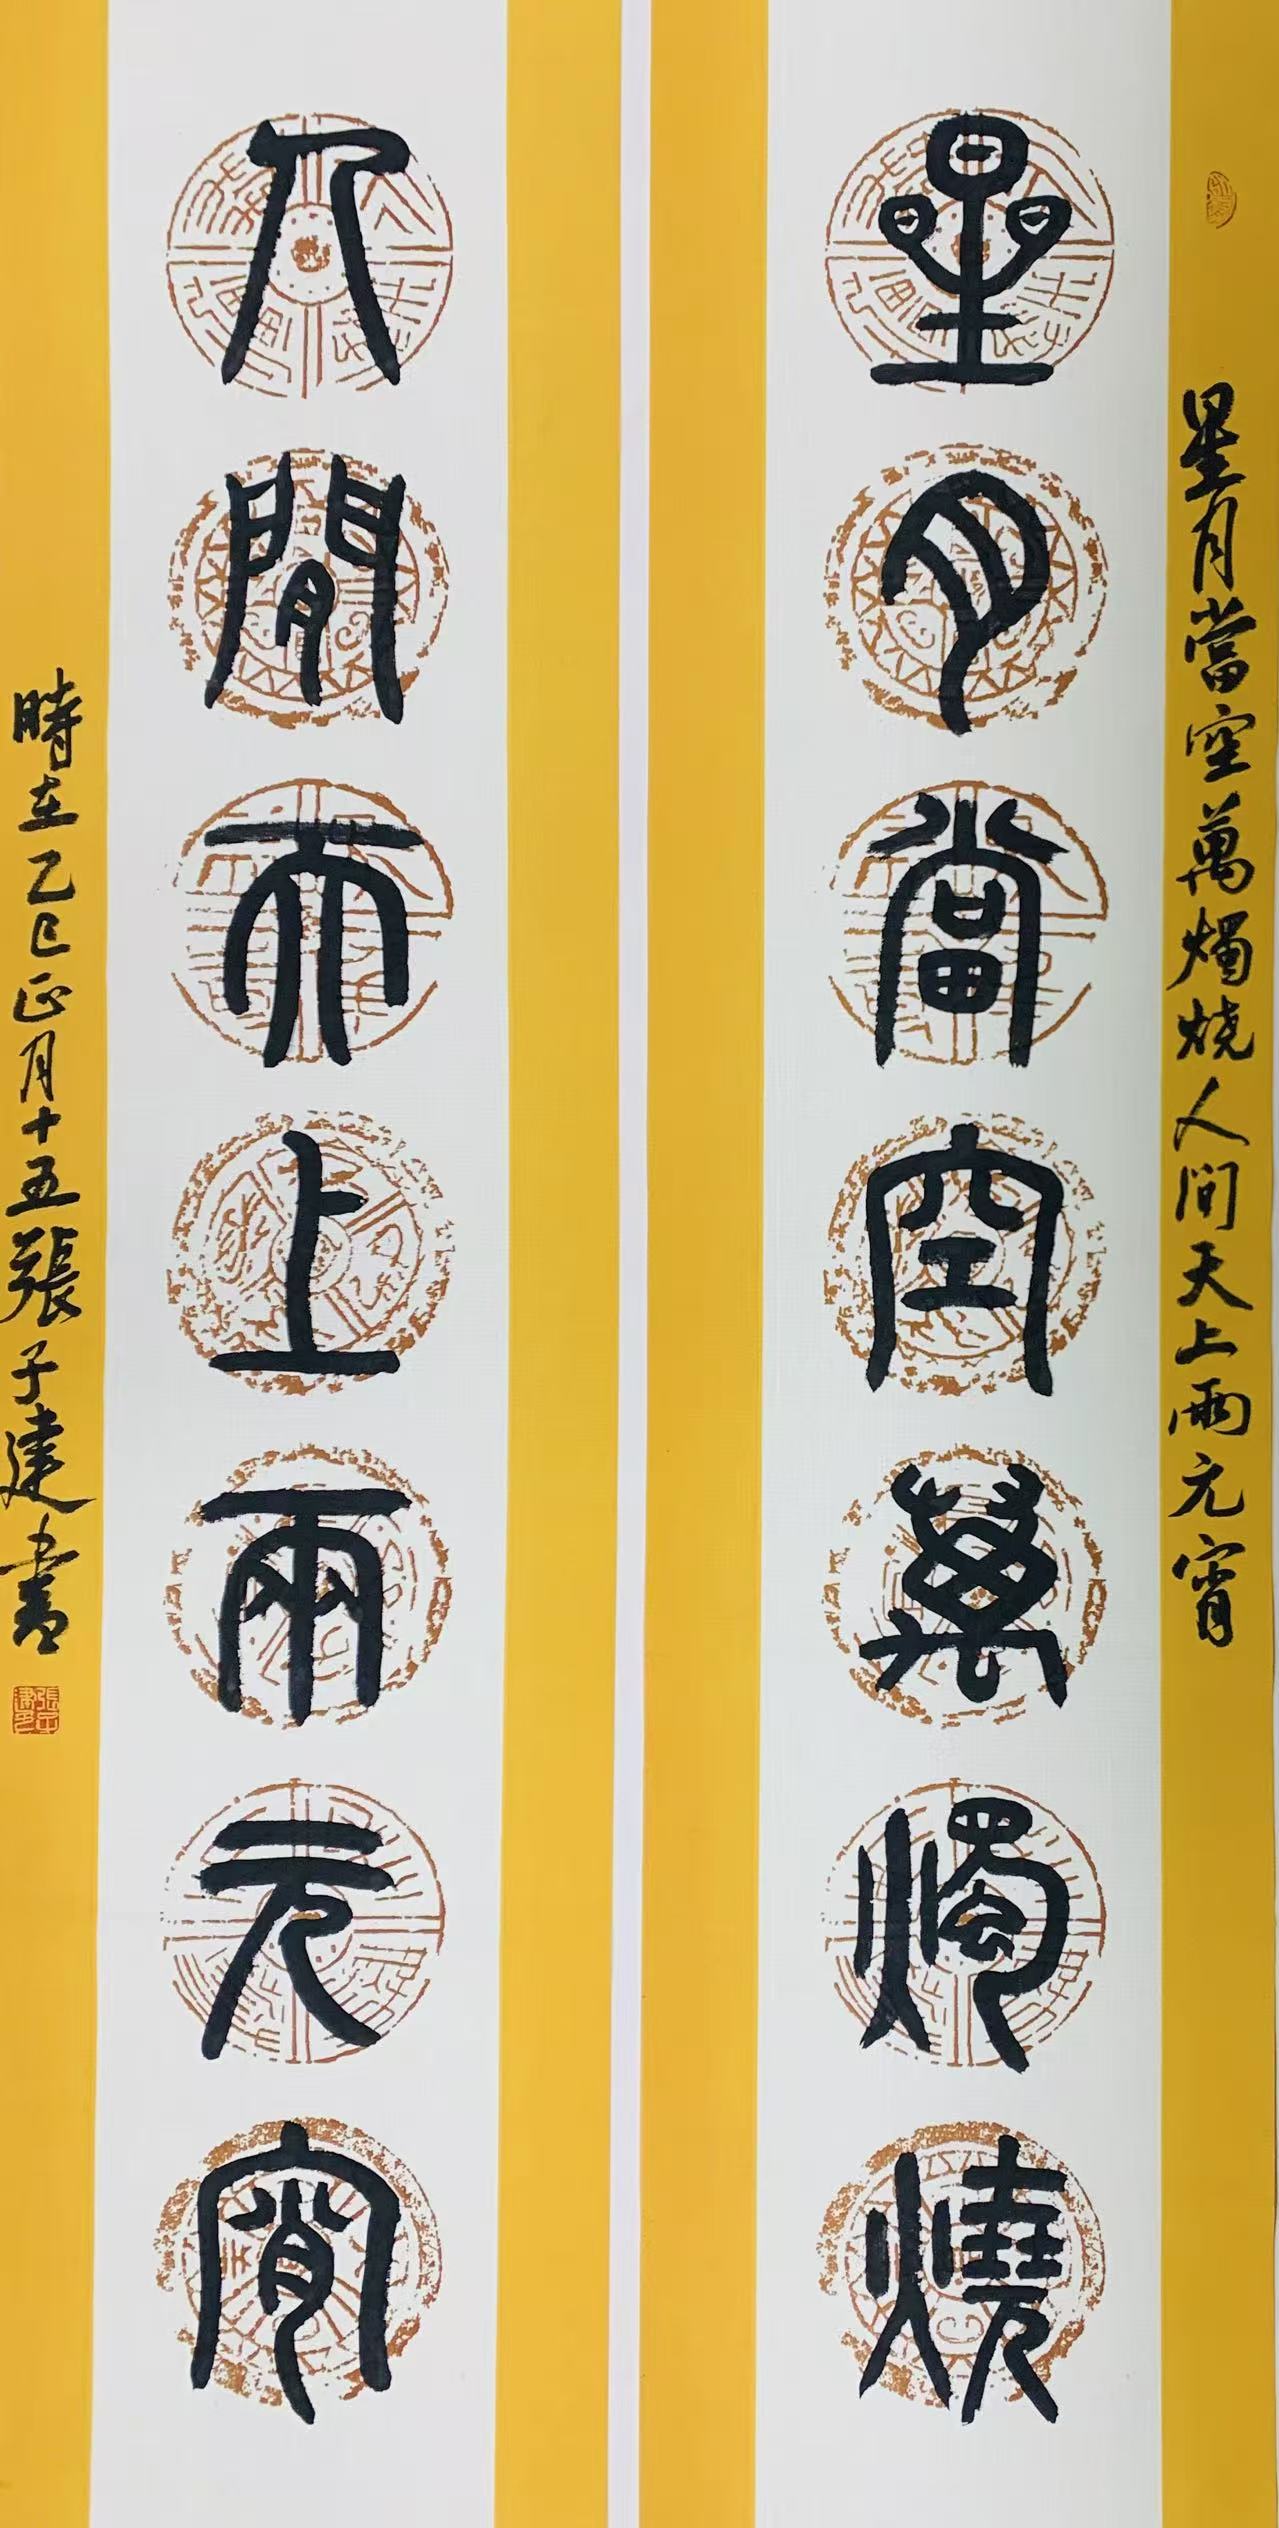 星月當空萬燭燒人间天上兩元宵
星月當空萬燭燒
人間天上兩元宵
時在乙巳正月十五張子建書